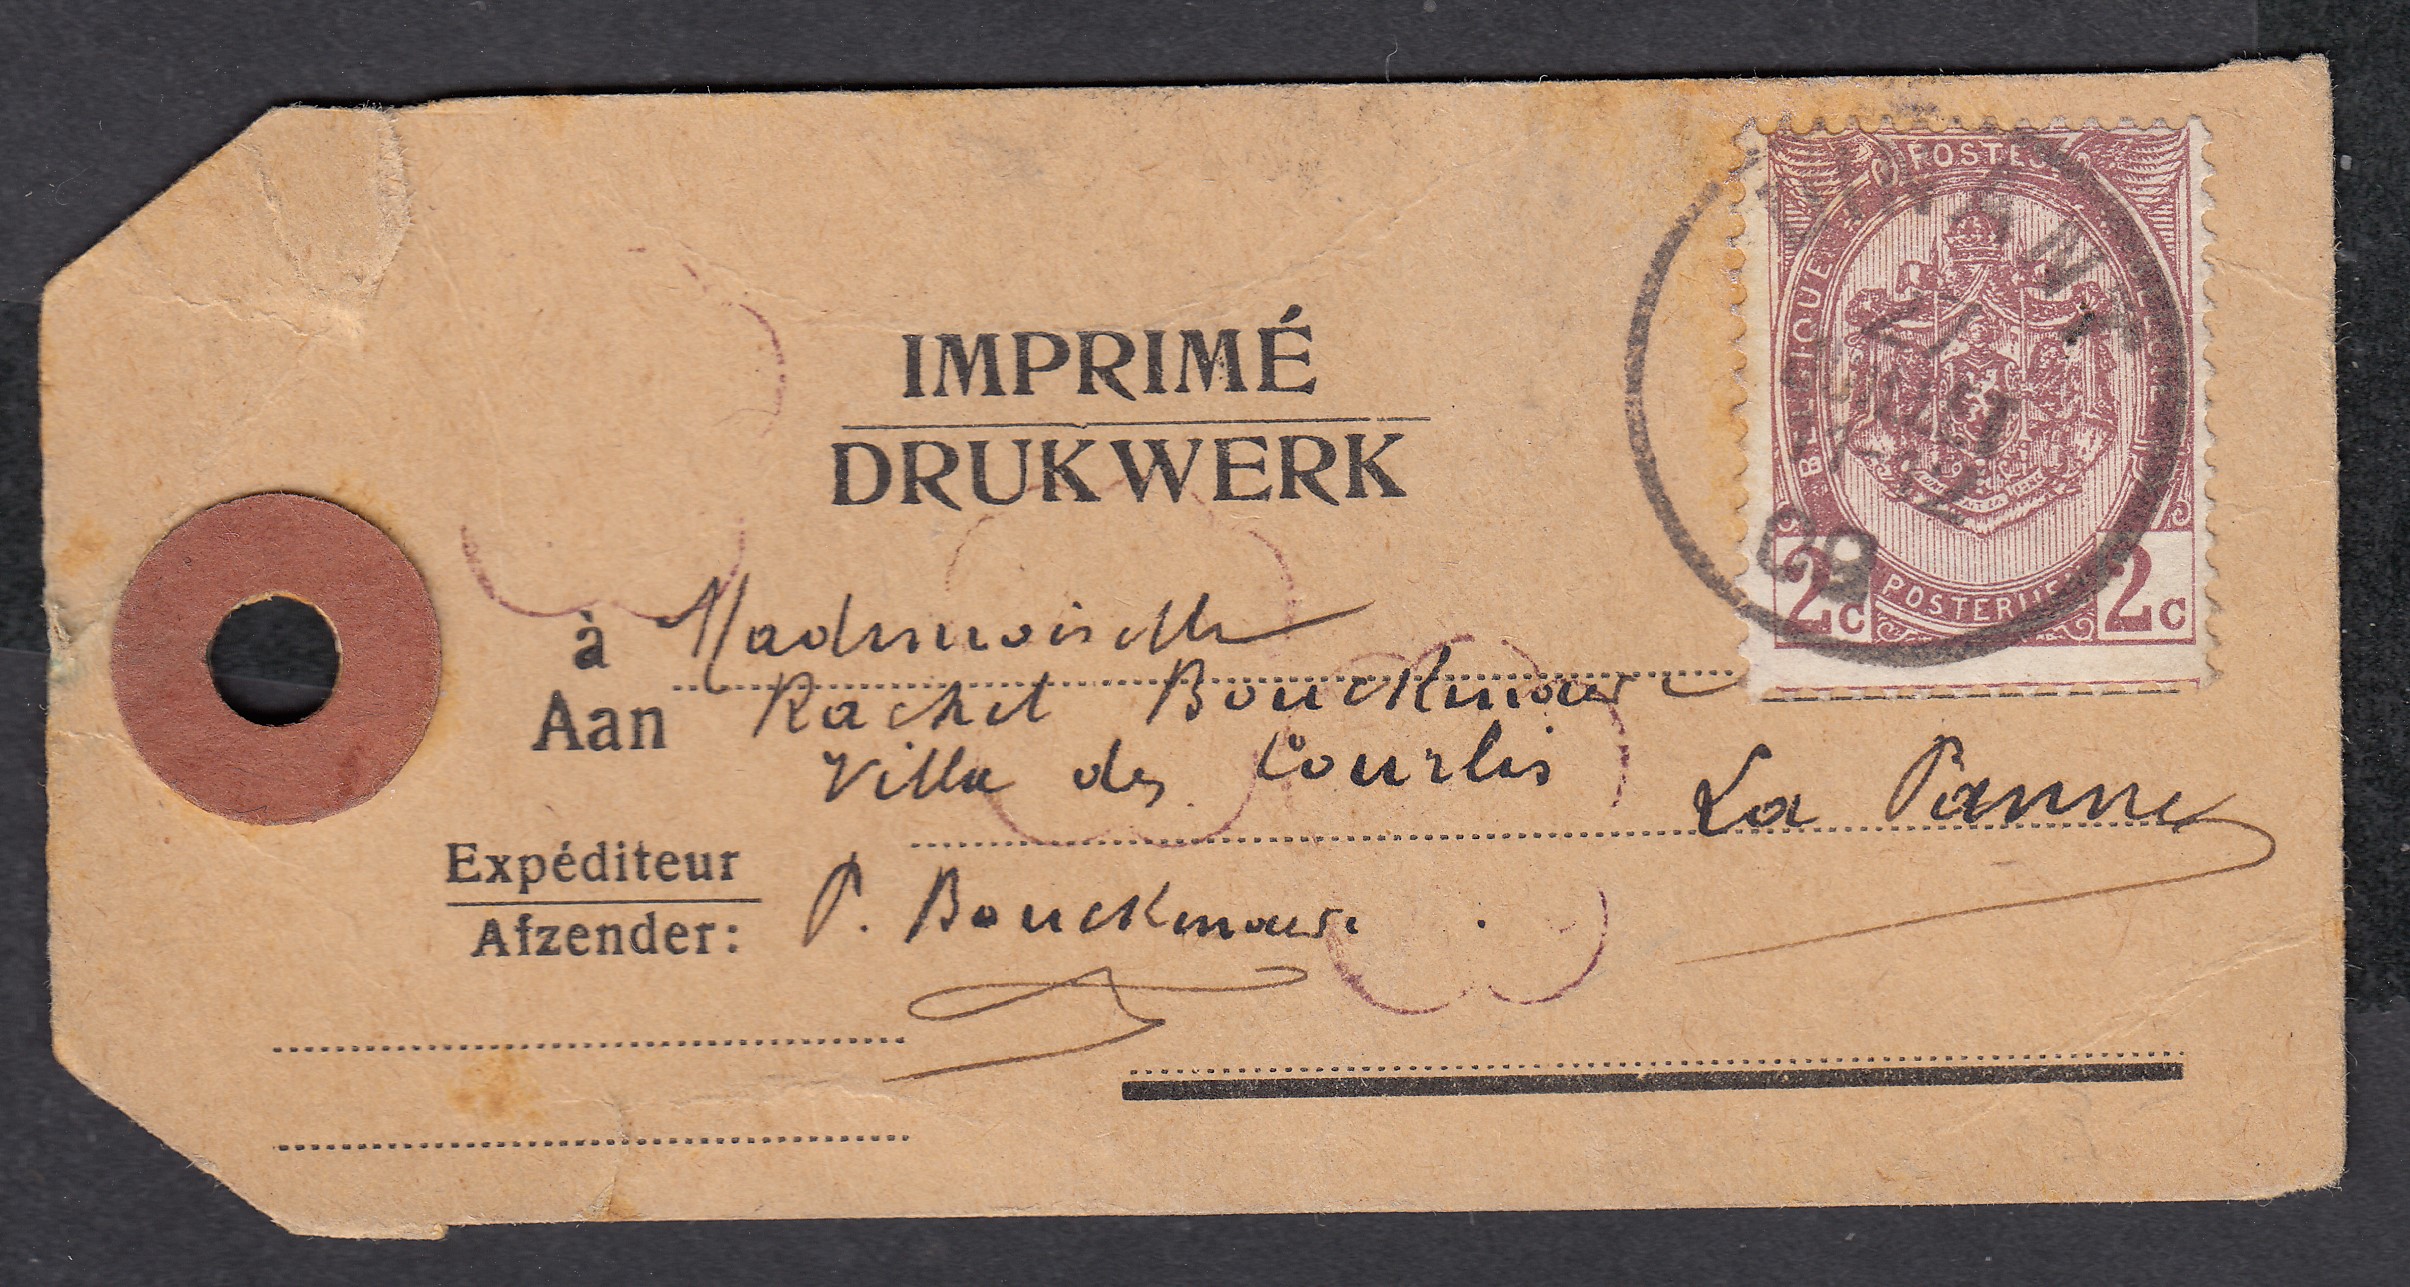 IMPRIMÉ
DRUKWERK
POSTES
BELGIQUE
POSTERIJEN
2c 2c
09
à Mademoiselle
Aan Rachel Bouckenoure
Villa des Courlis La Panne
Expéditeur
Afzender: P. Bouckenoure